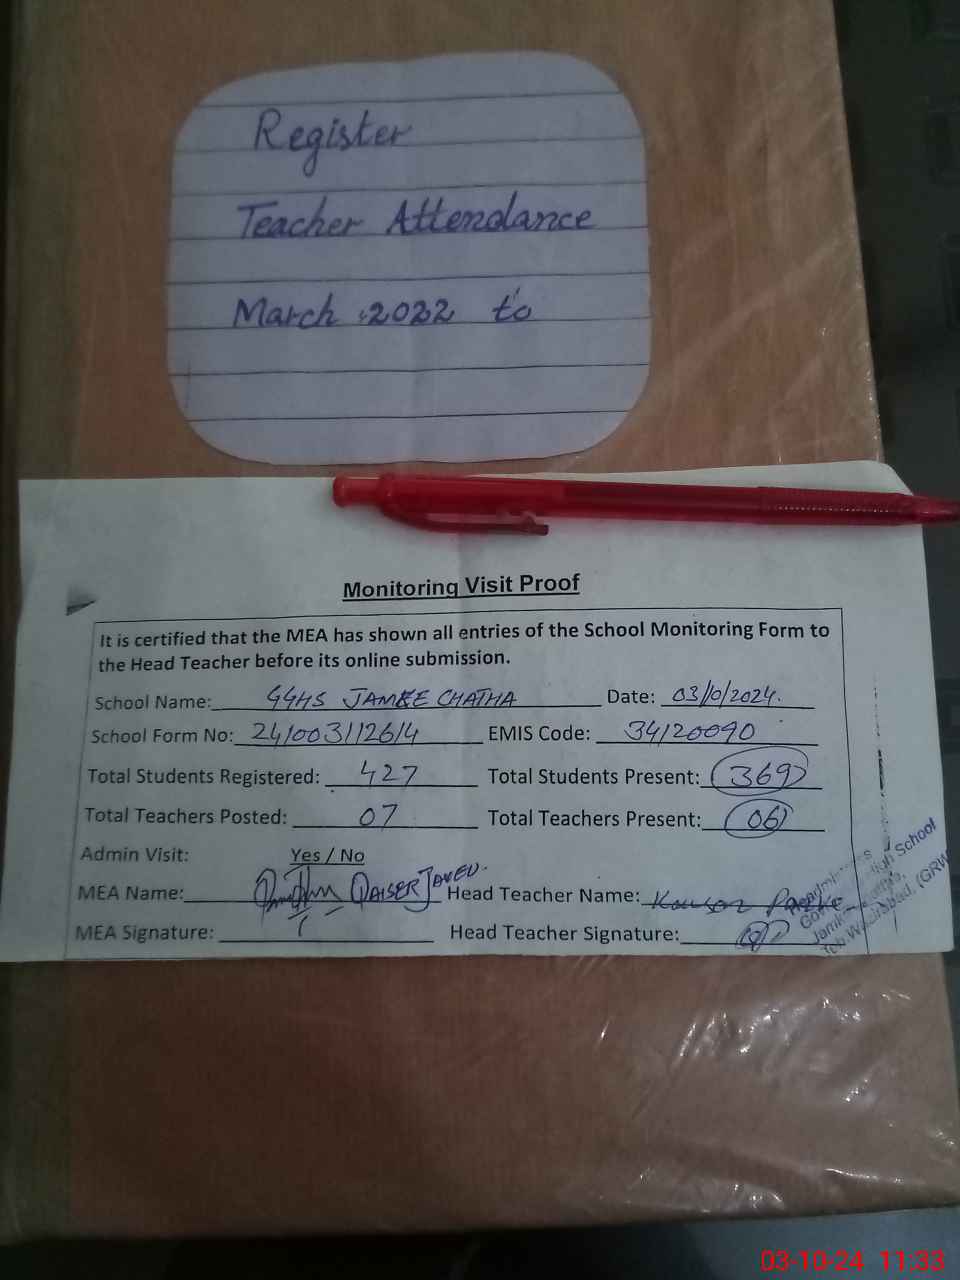 Register
Teacher Attendance
March 2022 to
Monitoring Visit Proof
It is certified that the MEA has shown all entries of the School Monitoring Form to
the Head Teacher before its online submission.
School Name: GGHS JAMKE CHATHA Date: 03/10/2024.
School Form No: 2410031126/4 EMIS Code: 34120090
Total Students Registered: 427 Total Students Present: 369
Total Teachers Posted: 07 Total Teachers Present: 06
Admin Visit: Yes / No
MEA Name: QAISER JAVED. Head Teacher Name: Kousar
MEA Signature: Head Teacher Signature:
School
(GRW
03-10-24 11:33